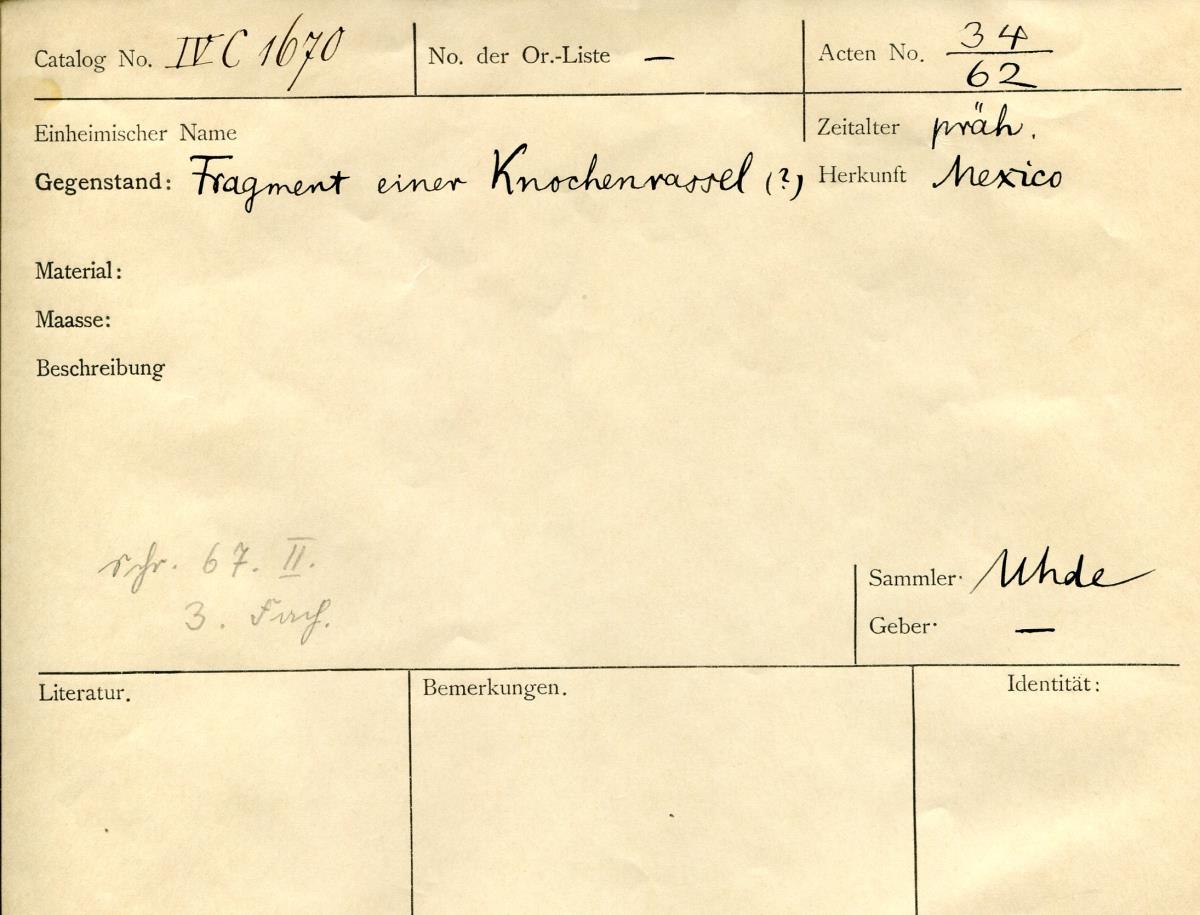 Catalog No. IV C 1670 No. der Or.-Liste — Acten No. 34/62
Einheimischer Name Zeitalter präh.
Gegenstand: Fragment einer Knochenrassel (?) Herkunft Mexico
Material:
Maasse:
Beschreibung
Schr. 67. II.
3. Fach.
Sammler. Uhde
Geber. —
Literatur. Bemerkungen. Identität: